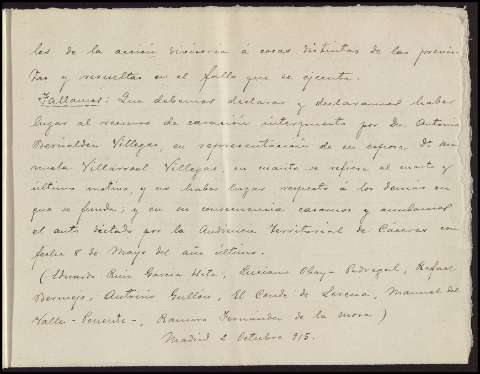 les de la acción divisoria á cosas distintas de las previs-
tas y resueltas en el fallo que se ejecuta.
Fallamos: Que debemos declarar y declaramos haber
lugar al recurso de casación interpuesto por Dn. Antonio
Bernáldez Villegas, en representación de su esposa Dª Ma-
nuela Villarroel Villegas, en cuanto se refiere al cuarto y
último motivo, y no haber lugar respecto á los demás en
que se funda; y en su consecuencia casamos y anulamos
el auto dictado por la Audiencia Territorial de Cáceres con
fecha 8 de Mayo del año último.
(Eduardo Ruiz García Hita, Luciano Obaya Pedregal, Rafael
Bermejo, Antonio Gullón, El Conde de Lerena, Manuel del
Valle, Ramiro Fernández de la Mora)
Madrid 2 Octubre 915.